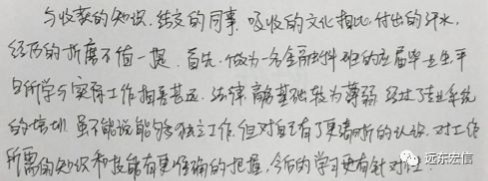 与收获的知识、结交的同事、吸收的文化相比,付出的汗水、
经历的折磨不值一提。首先,做为一名金融科班的应届毕业生平
日所学与实际工作相差甚远,法律、商务基础较为薄弱,经过了专业系统
的培训,虽不能说能够独立工作,但对自己有了更清晰的认识,对工作
所需的知识和技能有更准确的把握,今后的学习更有针对性。
远东宏信